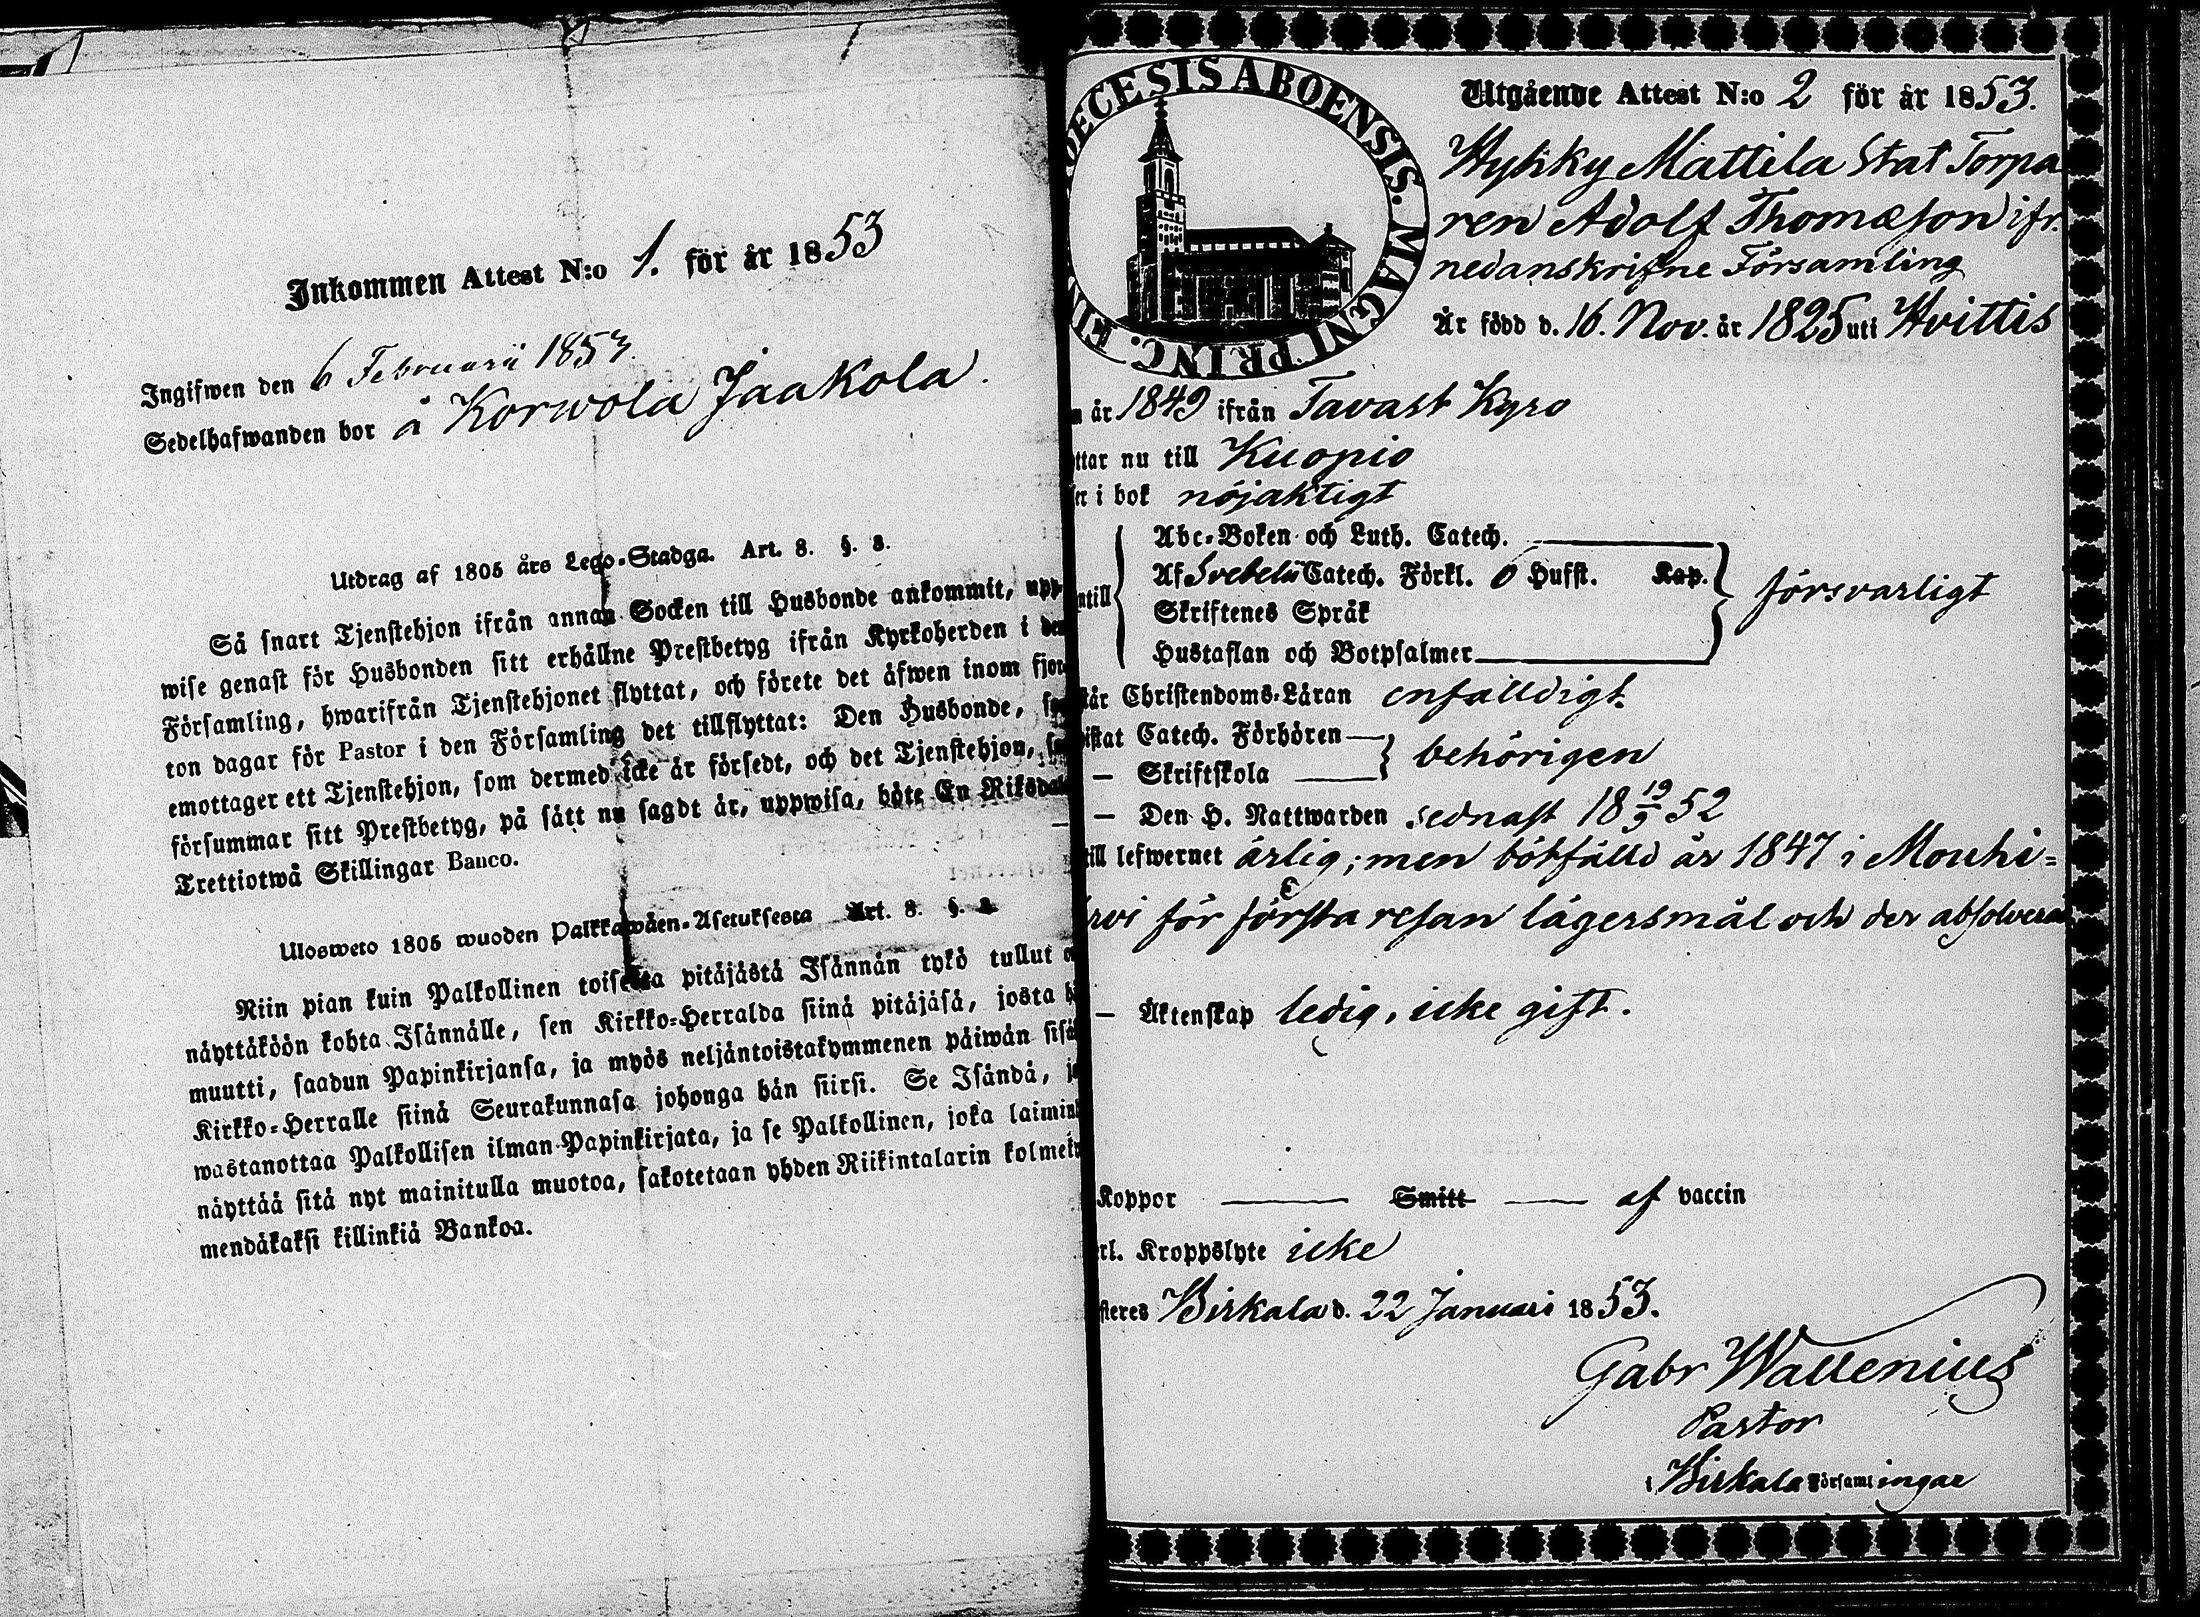 Inkommen Attest N:o 1. för år 1853
Ingifwen den 6 Februarii 1853.
Sedelhafwanden bor å Korwola Jaakola.
Utdrag af 1805 års Lego-Stadga. Art. 8. §. 3.
Så snart Tjenstehjon ifrån annan Socken till Husbonde ankommit, upp-
wise genast för Husbonden sitt erhållne Prestbetyg ifrån Kyrkoherden i den
Församling, hwarifrån Tjenstehjonet flyttat, och förete det äfwen inom fjor-
ton dagar för Pastor i den Församling det tillflyttat: Den Husbonde, so
emottager ett Tjenstehjon, som dermed icke är försedt, och det Tjenstehjon, so
försummar sitt Prestbetyg, på sätt nu sagdt är, uppwisa, böte En Riksdal
Trettiotwå Skillingar Banco.
Ulosweto 1805 wuoden Palkkawäen-Asetuksesta Art. 8. §.
Niin pian kuin Palkollinen toisesta pitäjästä Isännän tykö tullut o
näyttäköön kohta Isännälle, sen Kirkko-Herralda siinä pitäjäsä, josta h
muutti, saadun Papinkirjansa, ja myös neljäntoistakymmenen päiwän sisä
Kirkko-Herralle siinä Seurakunnasa johonga hän siirsi. Se Isändä, j
wastanottaa Palkollisen ilman Papinkirjata, ja se Palkollinen, joka laimin
näyttää sitä nyt mainitulla muotoa, sakotetaan yhden Riikintalarin kolmeky
mendäkaksi killinkiä Bankoa.
OECESIS ABOENSIS. MAGNI PRINC. FIN
Utgående Attest N:o 2 för år 1853.
Hykky Mattila Stat Torpa
ren Adolf Thomæson ifr.
nedanskrifne Församling
Är född d. 16. Nov. år 1825 uti Hvittis
n år 1849 ifrån Tavast Kyro
ttar nu till Kuopio
er i bok nöjaktigt
Abc-Boken och Luth. Catech.
Af Svebelii Catech. Förkl. 0 Hufst. Kap.
ntill försvarligt
Skriftenes Språk
Hustaflan och Botpsalmer
står Christendoms-Läran enfalldigt.
istat Catech. Förhören
behörigen
— Skriftskola
— Den H. Nattwarden sednast 18 19/9 52
till lefwernet ärlig; men bötfälld år 1847 i Mouhi=
rvi för första resan lägersmål och der absolvera
— Äktenskap ledig, icke gift.
Koppor — Smitt — af vaccin
erl. Kroppslyte icke
steres Birkala d. 22 Januari 1853.
Gabr Wallenius
Pastor
i Birkala Församlingar